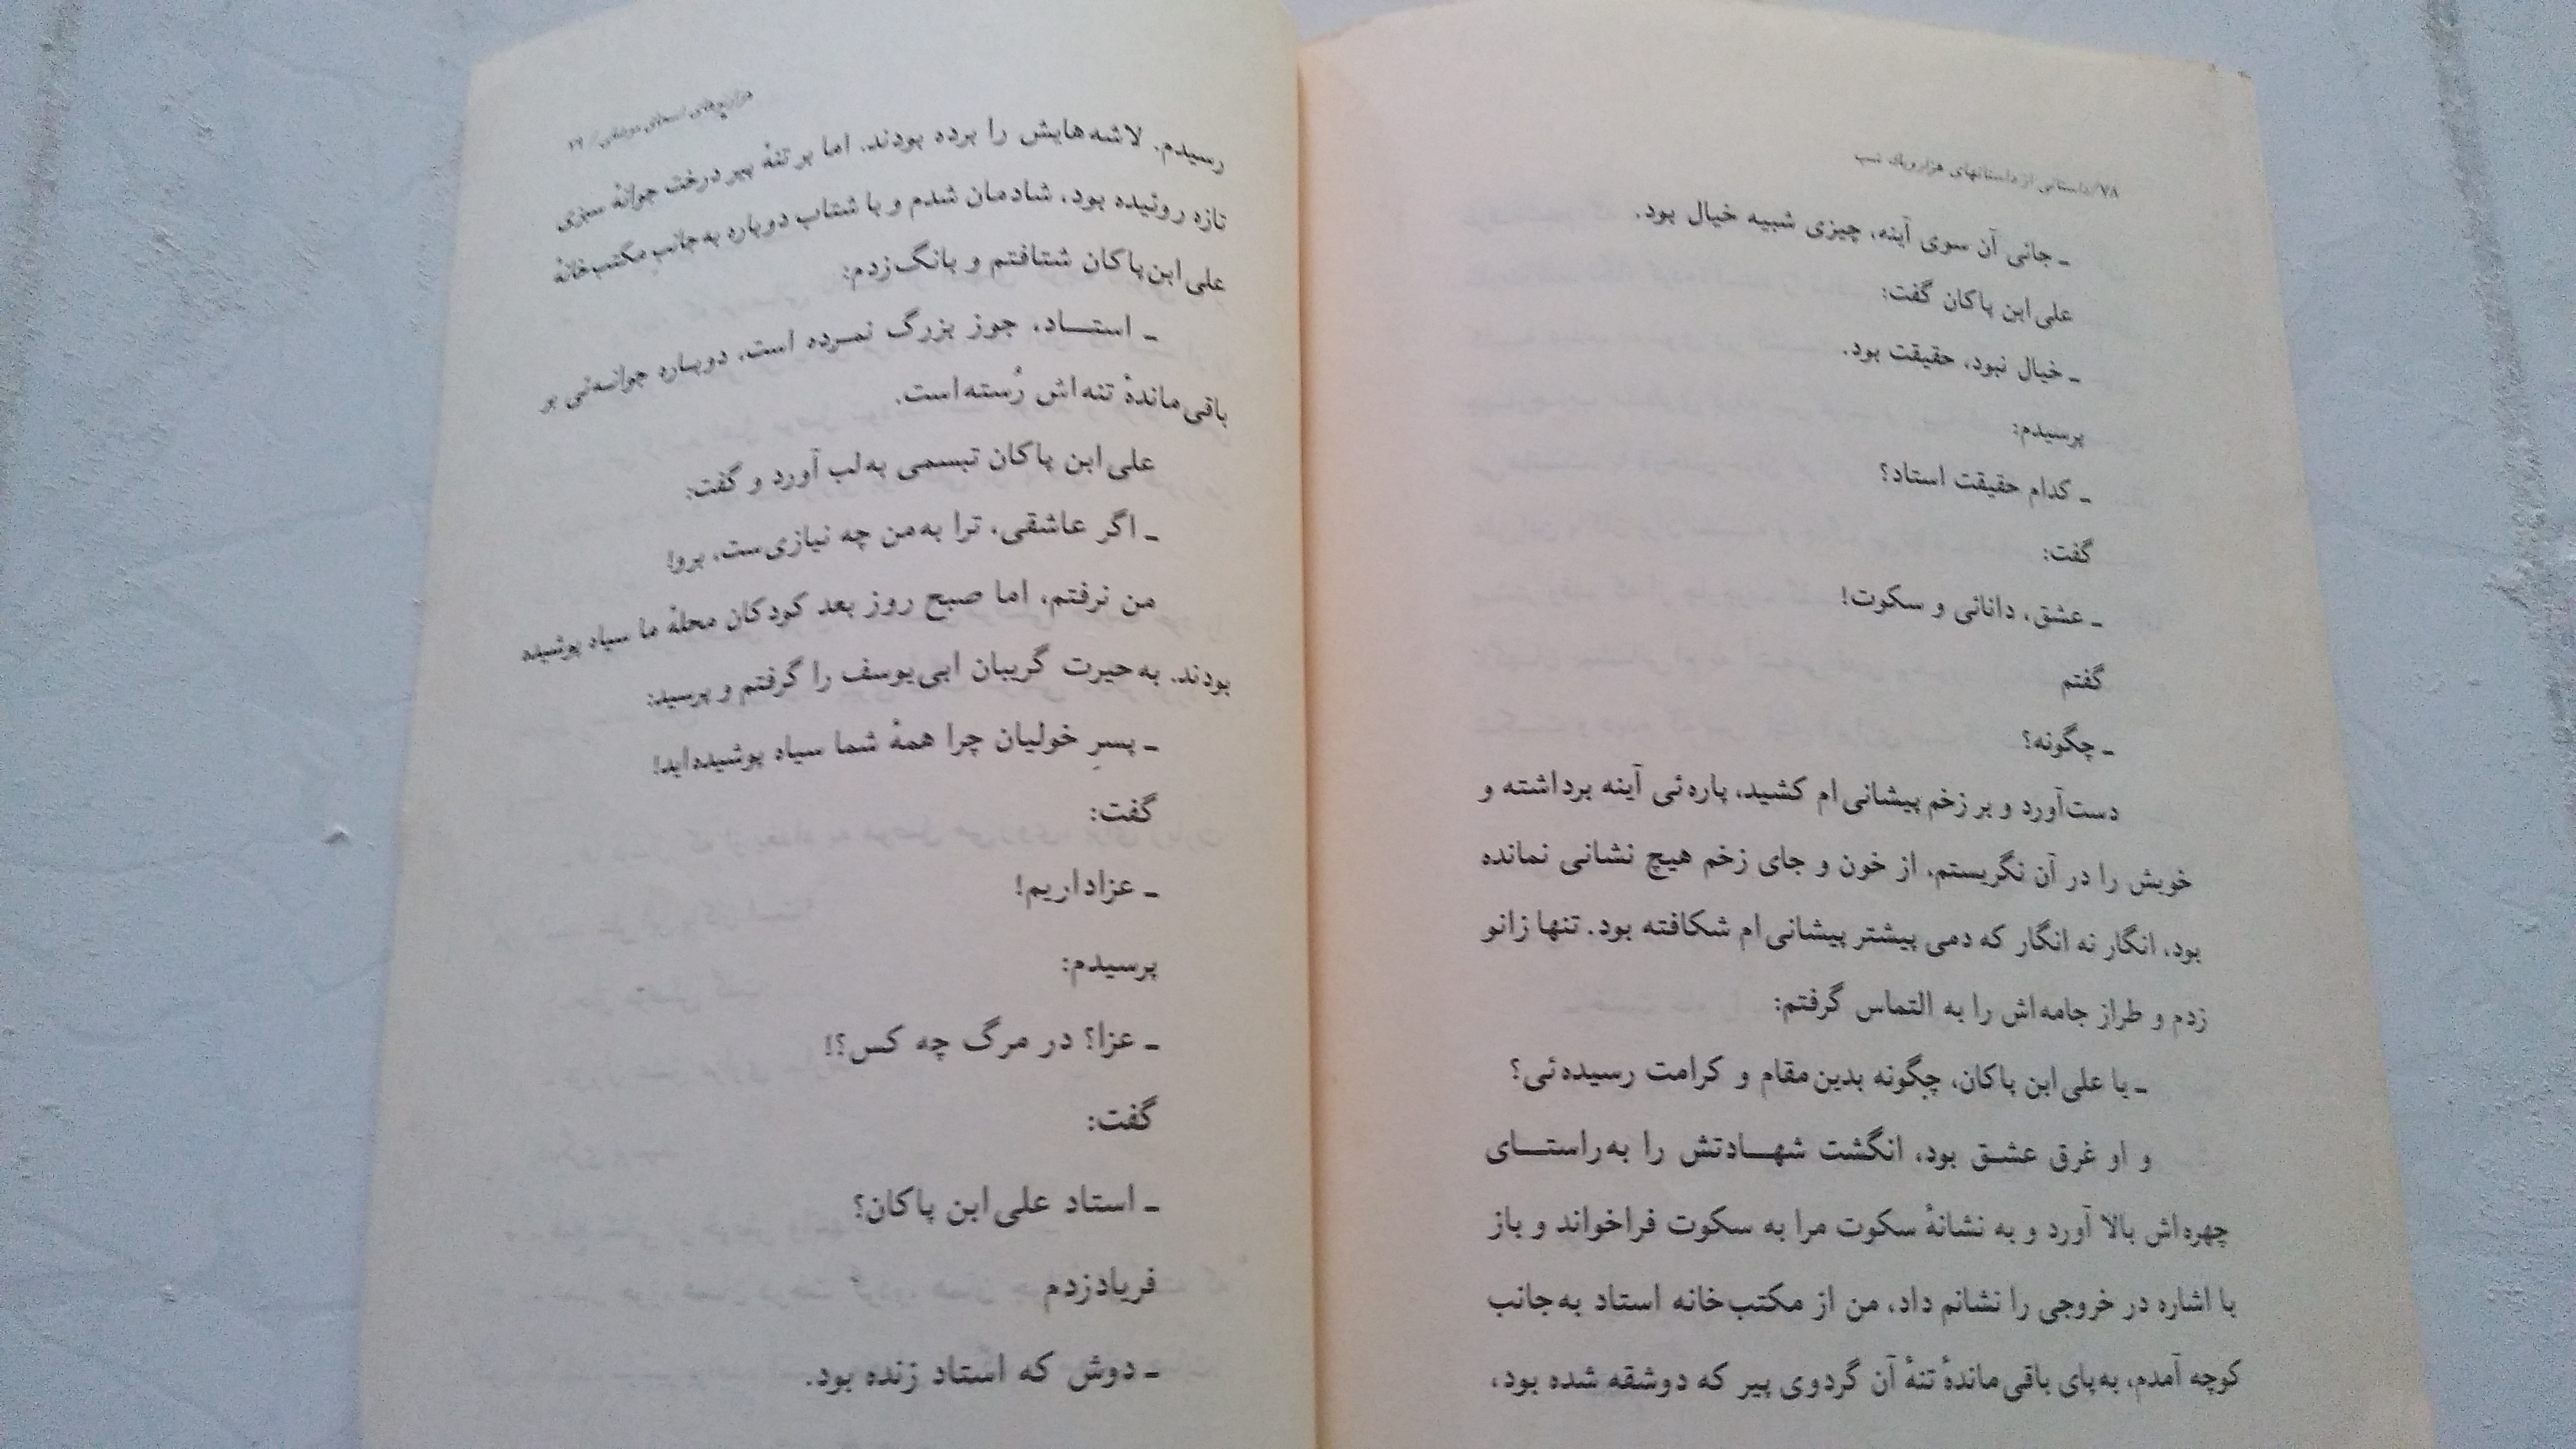 ۷۸/داستانی از داستانهای هزارویک شب
ـ جائی آن سوی آینه، چیزی شبیه خیال بود.
علی‌ابن پاکان گفت:
ـ خیال نبود، حقیقت بود.
پرسیدم:
ـ کدام حقیقت استاد؟
گفت:
ـ عشق، دانائی و سکوت!
گفتم
ـ چگونه؟
دست‌آورد و بر زخم پیشانی‌ام کشید، پاره‌ئی آینه برداشته و
خویش را در آن نگریستم، از خون و جای زخم هیچ نشانی نمانده
بود، انگار نه انگار که دمی پیشتر پیشانی‌ام شکافته بود. تنها زانو
زدم و طراز جامه‌اش را به التماس گرفتم:
ـ یا علی‌ابن پاکان، چگونه بدین‌مقام و کرامت رسیده‌ئی؟
و او غرق عشق بود، انگشت شهادتش را به‌راستای
چهره‌اش بالا آورد و به نشانهٔ سکوت مرا به سکوت فراخواند و باز
با اشاره در خروجی را نشانم داد، من از مکتب‌خانه استاد به‌جانب
کوچه آمدم، به‌پای باقی‌ماندهٔ تنهٔ آن گردوی پیر که دوشقه شده بود،
رسیدم. لاشه‌هایش را برده بودند. اما بر تنهٔ پیر درخت جوانهٔ سبزی
تازه روئیده بود، شادمان شدم و با شتاب دوباره به‌جانبِ مکتب‌خانهٔ
علی‌ابن‌پاکان شتافتم و بانگ‌زدم:
ـ استاد، جوز بزرگ نمرده است، دوباره جوانه‌ئی بر
باقی‌ماندهٔ تنه‌اش رُسته‌است.
علی‌ابن پاکان تبسمی به‌لب آورد و گفت:
ـ اگر عاشقی، ترا به‌من چه نیازی‌ست، برو!
من نرفتم، اما صبح روز بعد کودکان محلهٔ ما سیاه پوشیده
بودند. به‌حیرت گریبان ابی‌یوسف را گرفتم و پرسید:
ـ پسرِ خولیان چرا همهٔ شما سیاه پوشیده‌اید!
گفت:
ـ عزاداریم!
پرسیدم:
ـ عزا؟ در مرگ چه کس؟!
گفت:
ـ استاد علی‌ابن پاکان؟
فریادزدم
ـ دوش که استاد زنده بود.